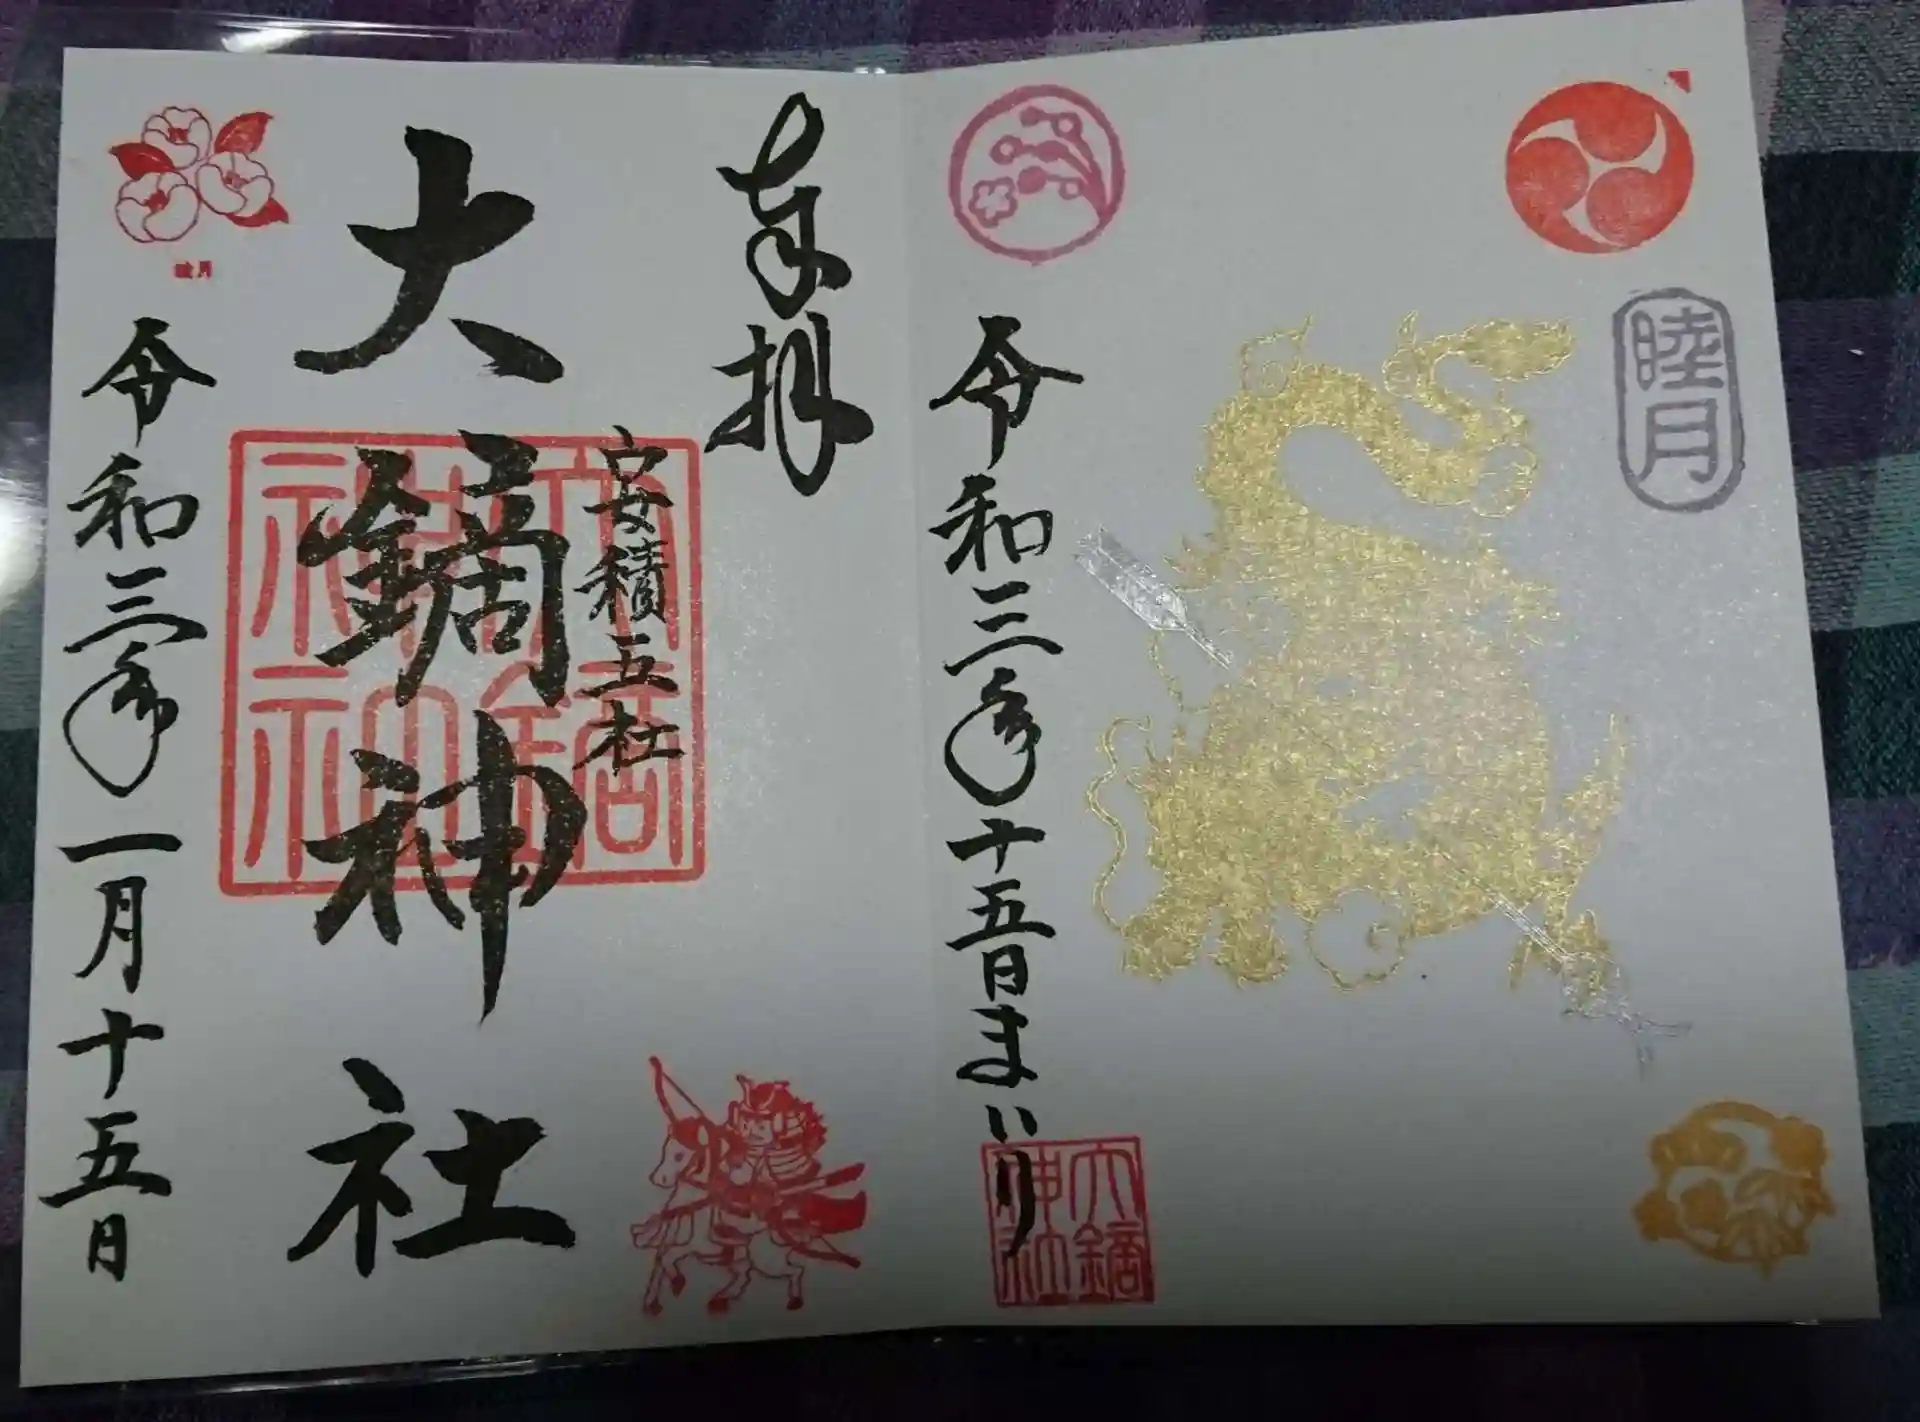 睦月
令和三年十五日まいり
大鏑神社
奉拝
安積五社
大鏑神社
大鏑神社
睦月
令和三年一月十五日